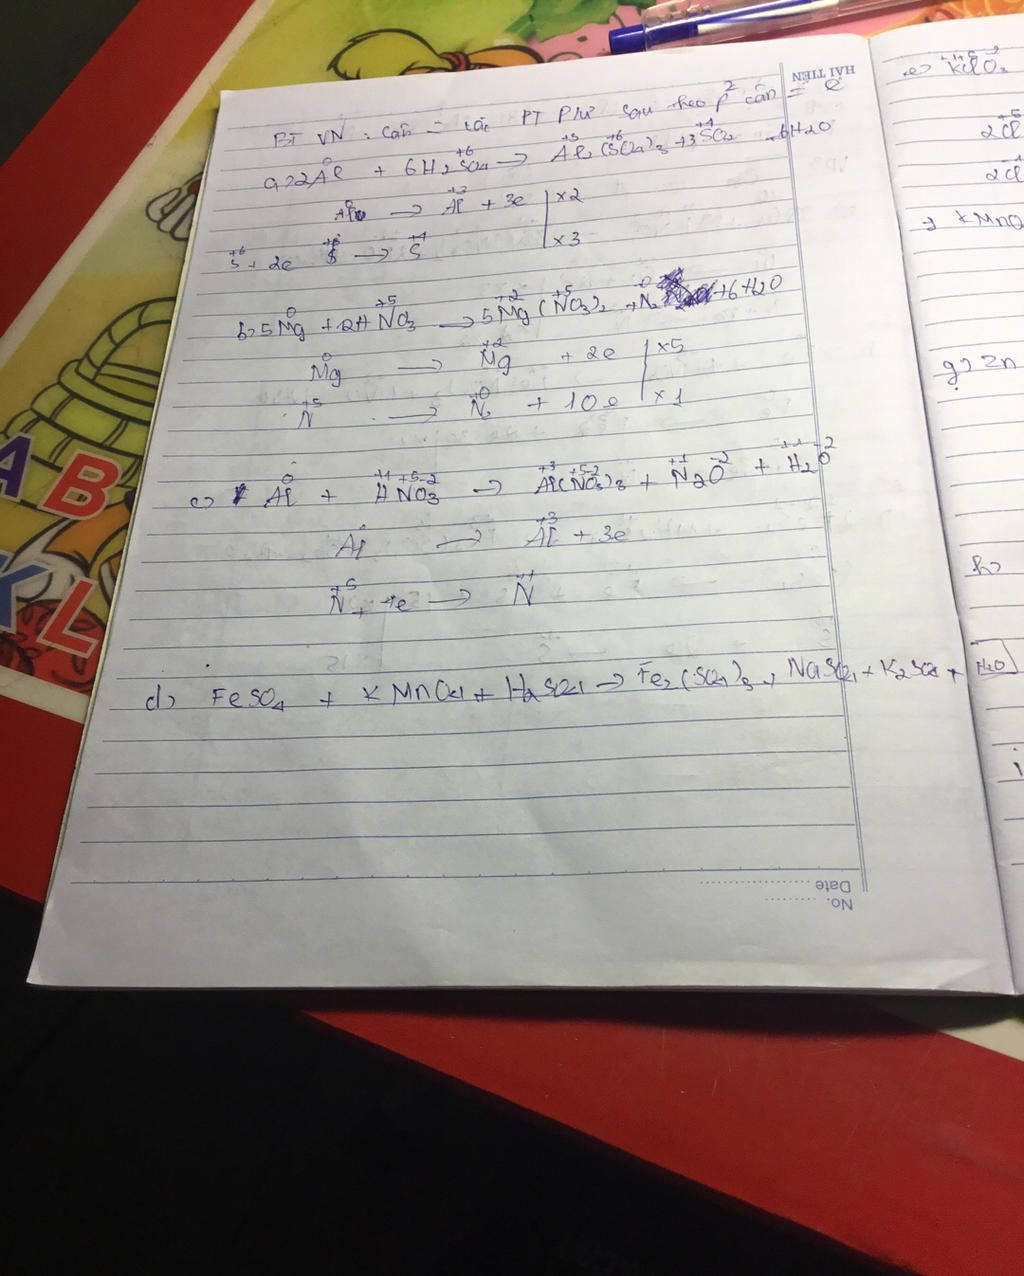 HẢI TIẾN
BT VN: Cân = các PT PƯ sau theo p² cân = e
a> 2Al + 6H₂SO₄ → Al₂(SO₄)₃ + 3SO₂ + 6H₂O
Al → Al + 3e | x2
S + 2e S → S | x3
b> 5Mg + 12HNO₃ → 5Mg(NO₃)₂ + N₂ + 6H₂O
Mg → Mg + 2e | x5
N → N₂ + 10e | x1
c) Al + HNO₃ → Al(NO₃)₃ + N₂O + H₂O
Al → Al + 3e
N + 4e → N
d) FeSO₄ + KMnO₄ + H₂SO₄ → Fe₂(SO₄)₃ + NaSO₄ + K₂SO₄ + H₂O
No. ..........
Date ..................
e> KClO₃
2Cl
2Cl
KMnO
g> Zn
h>
i
A
B
K
L